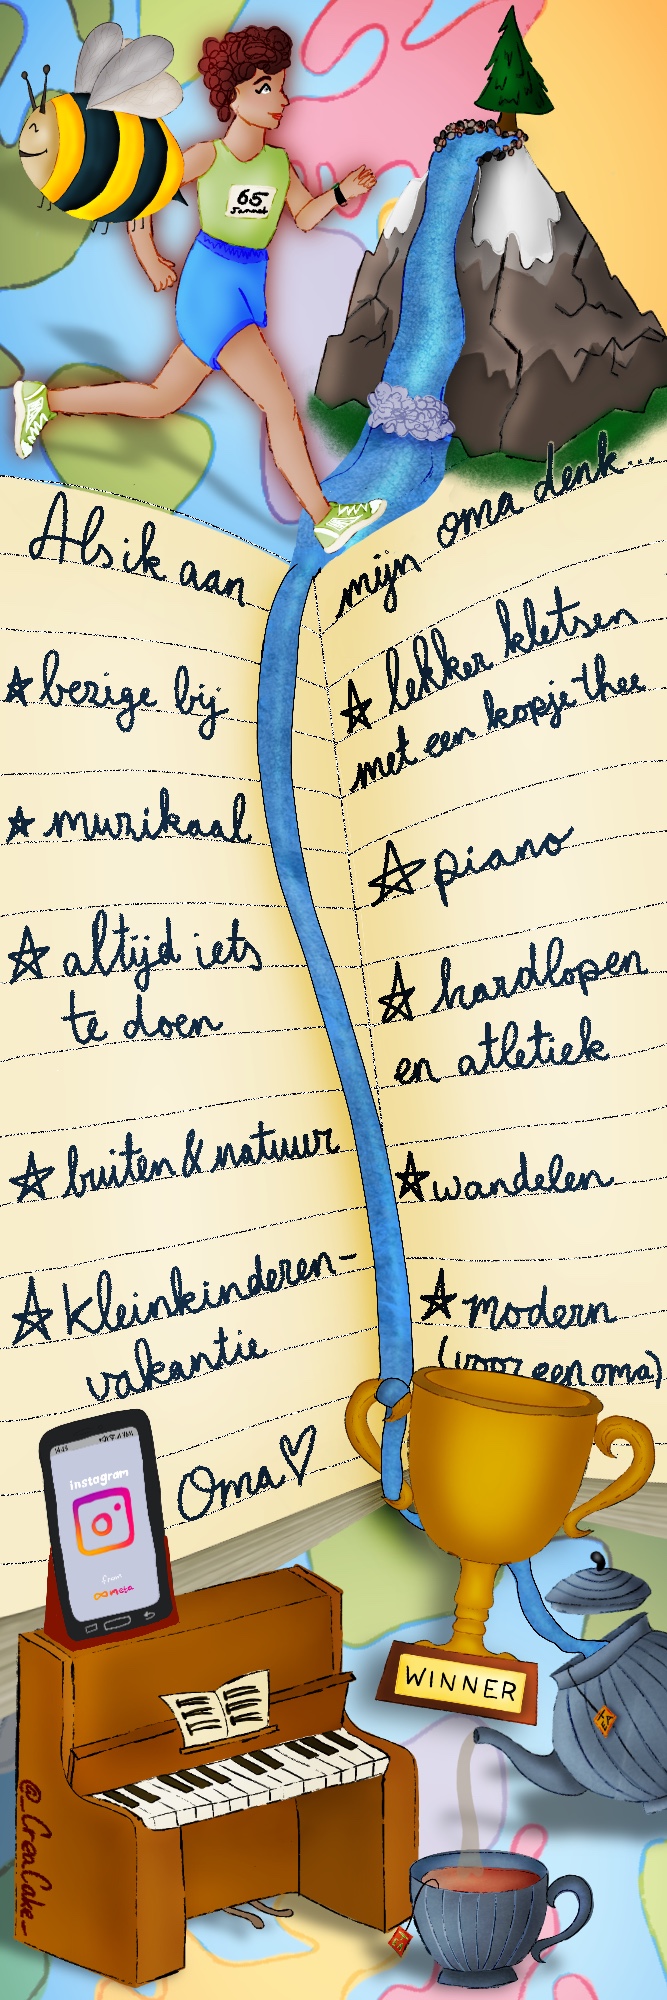 65
Jannet
Als ik aan
mijn oma denk...
☆ bezige bij
☆ muzikaal
☆ altijd iets
te doen
☆ buiten & natuur
☆ kleinkinderen-
vakantie
Oma ♡
☆ lekker kletsen
met een kopje thee
☆ piano
☆ hardlopen
en atletiek
☆ wandelen
☆ modern
(voor een oma)
instagram
from
∞ meta
WINNER
TEA
@_CreaCake_
TEA